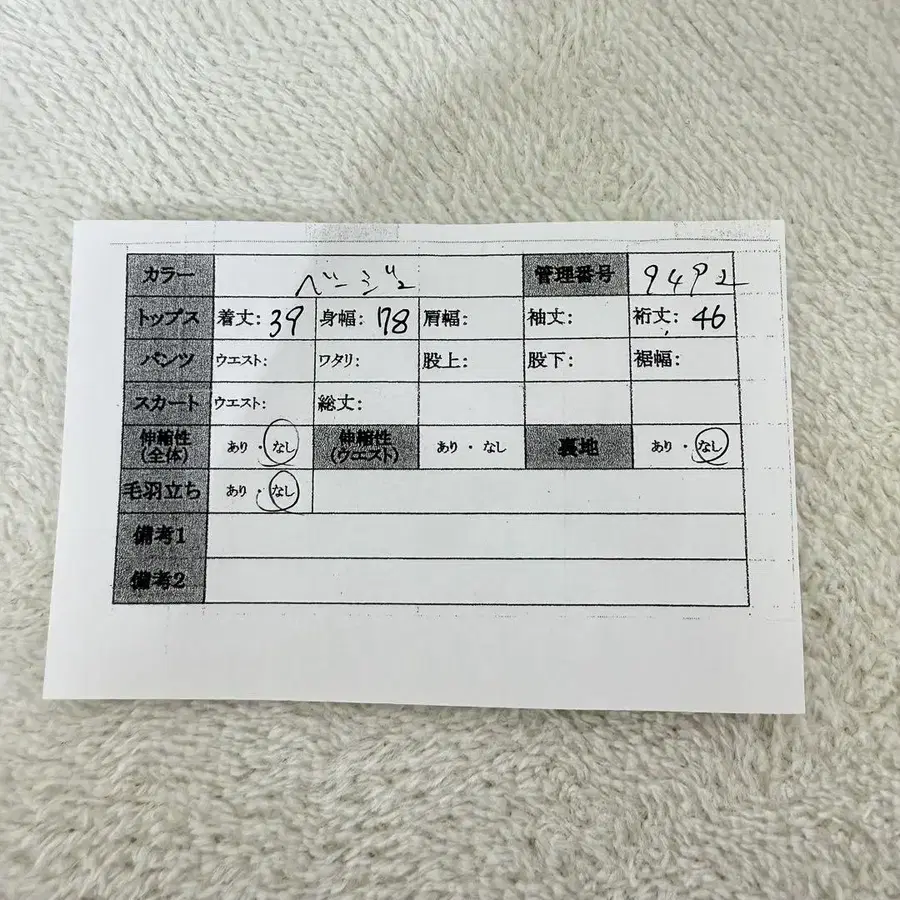 カラー ベージュ 管理番号 9492
トップス 着丈: 39 身幅: 178 肩幅: 袖丈: 裄丈: 46
パンツ ウエスト: ワタリ: 股上: 股下: 裾幅:
スカート ウエスト: 総丈:
伸縮性(全体) あり・なし 伸縮性(ウエスト) あり・なし 裏地 あり・なし
毛羽立ち あり・なし
備考1
備考2